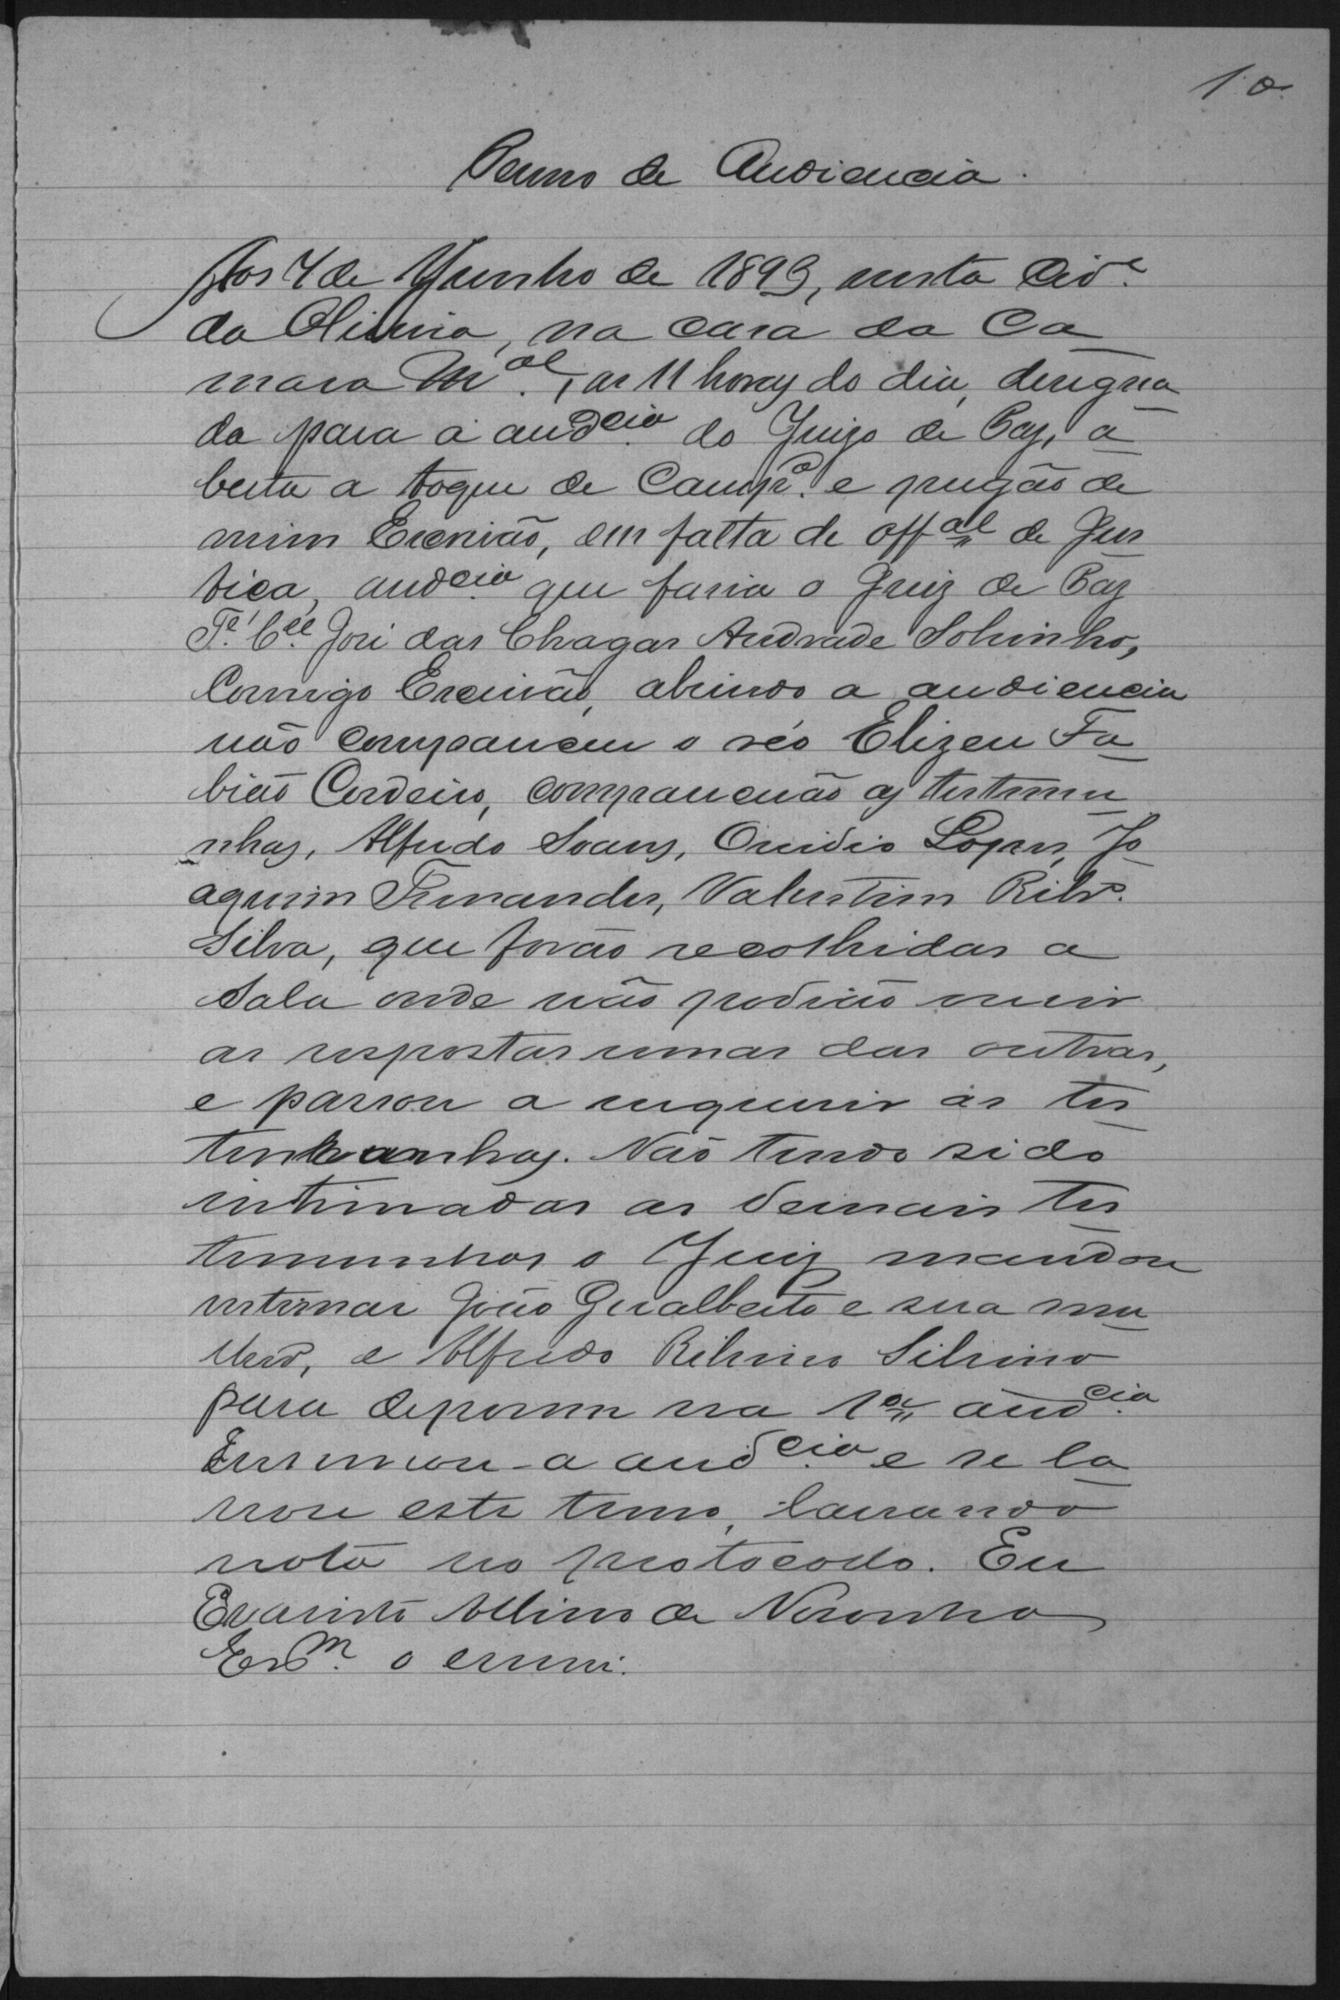 10
Termo de Audiencia.
Aos 4 de Junho de 1893, nesta Cid.e
da Oliveira, na casa da Ca
mara M.al, as 11 horas do dia, designa
da para a aud.cia do Juizo de Paz, a
berta a toque de Camp.a e pregão de
mim Escrivão, em falta de off.al de Jus
tiça, aud.cia que fazia o Juiz de Paz
T.e C.el José das Chagas Andrade Sobrinho,
Comigo Escrivão, abrindo a audiencia
não compareceu o réo Elizeu Fa
bião Cordeiro, comparecerão as testemu
nhas, Alfredo Soares, Ouvidio Lopes, Jo
aquim Fernandes, Valentim Ribr.o
Silva, que forão recolhidas a
Sala onde não podião ouvir
as respostas umas das outras,
e passou a inquerir as tes
temunhas. Não tendo sido
intimadas as demais tes
temunhas o Juiz mandou
intimar João Gualberto e sua mu
lher, e Alfredo Ribeiro Silvino
para deporem na 1.a aud.cia
Encerrou-a aud.cia e se la
vrou este termo, lavrando
nota no protocolo. Eu
Evaristo Albino de Noronha
Esc.m o escrevi.